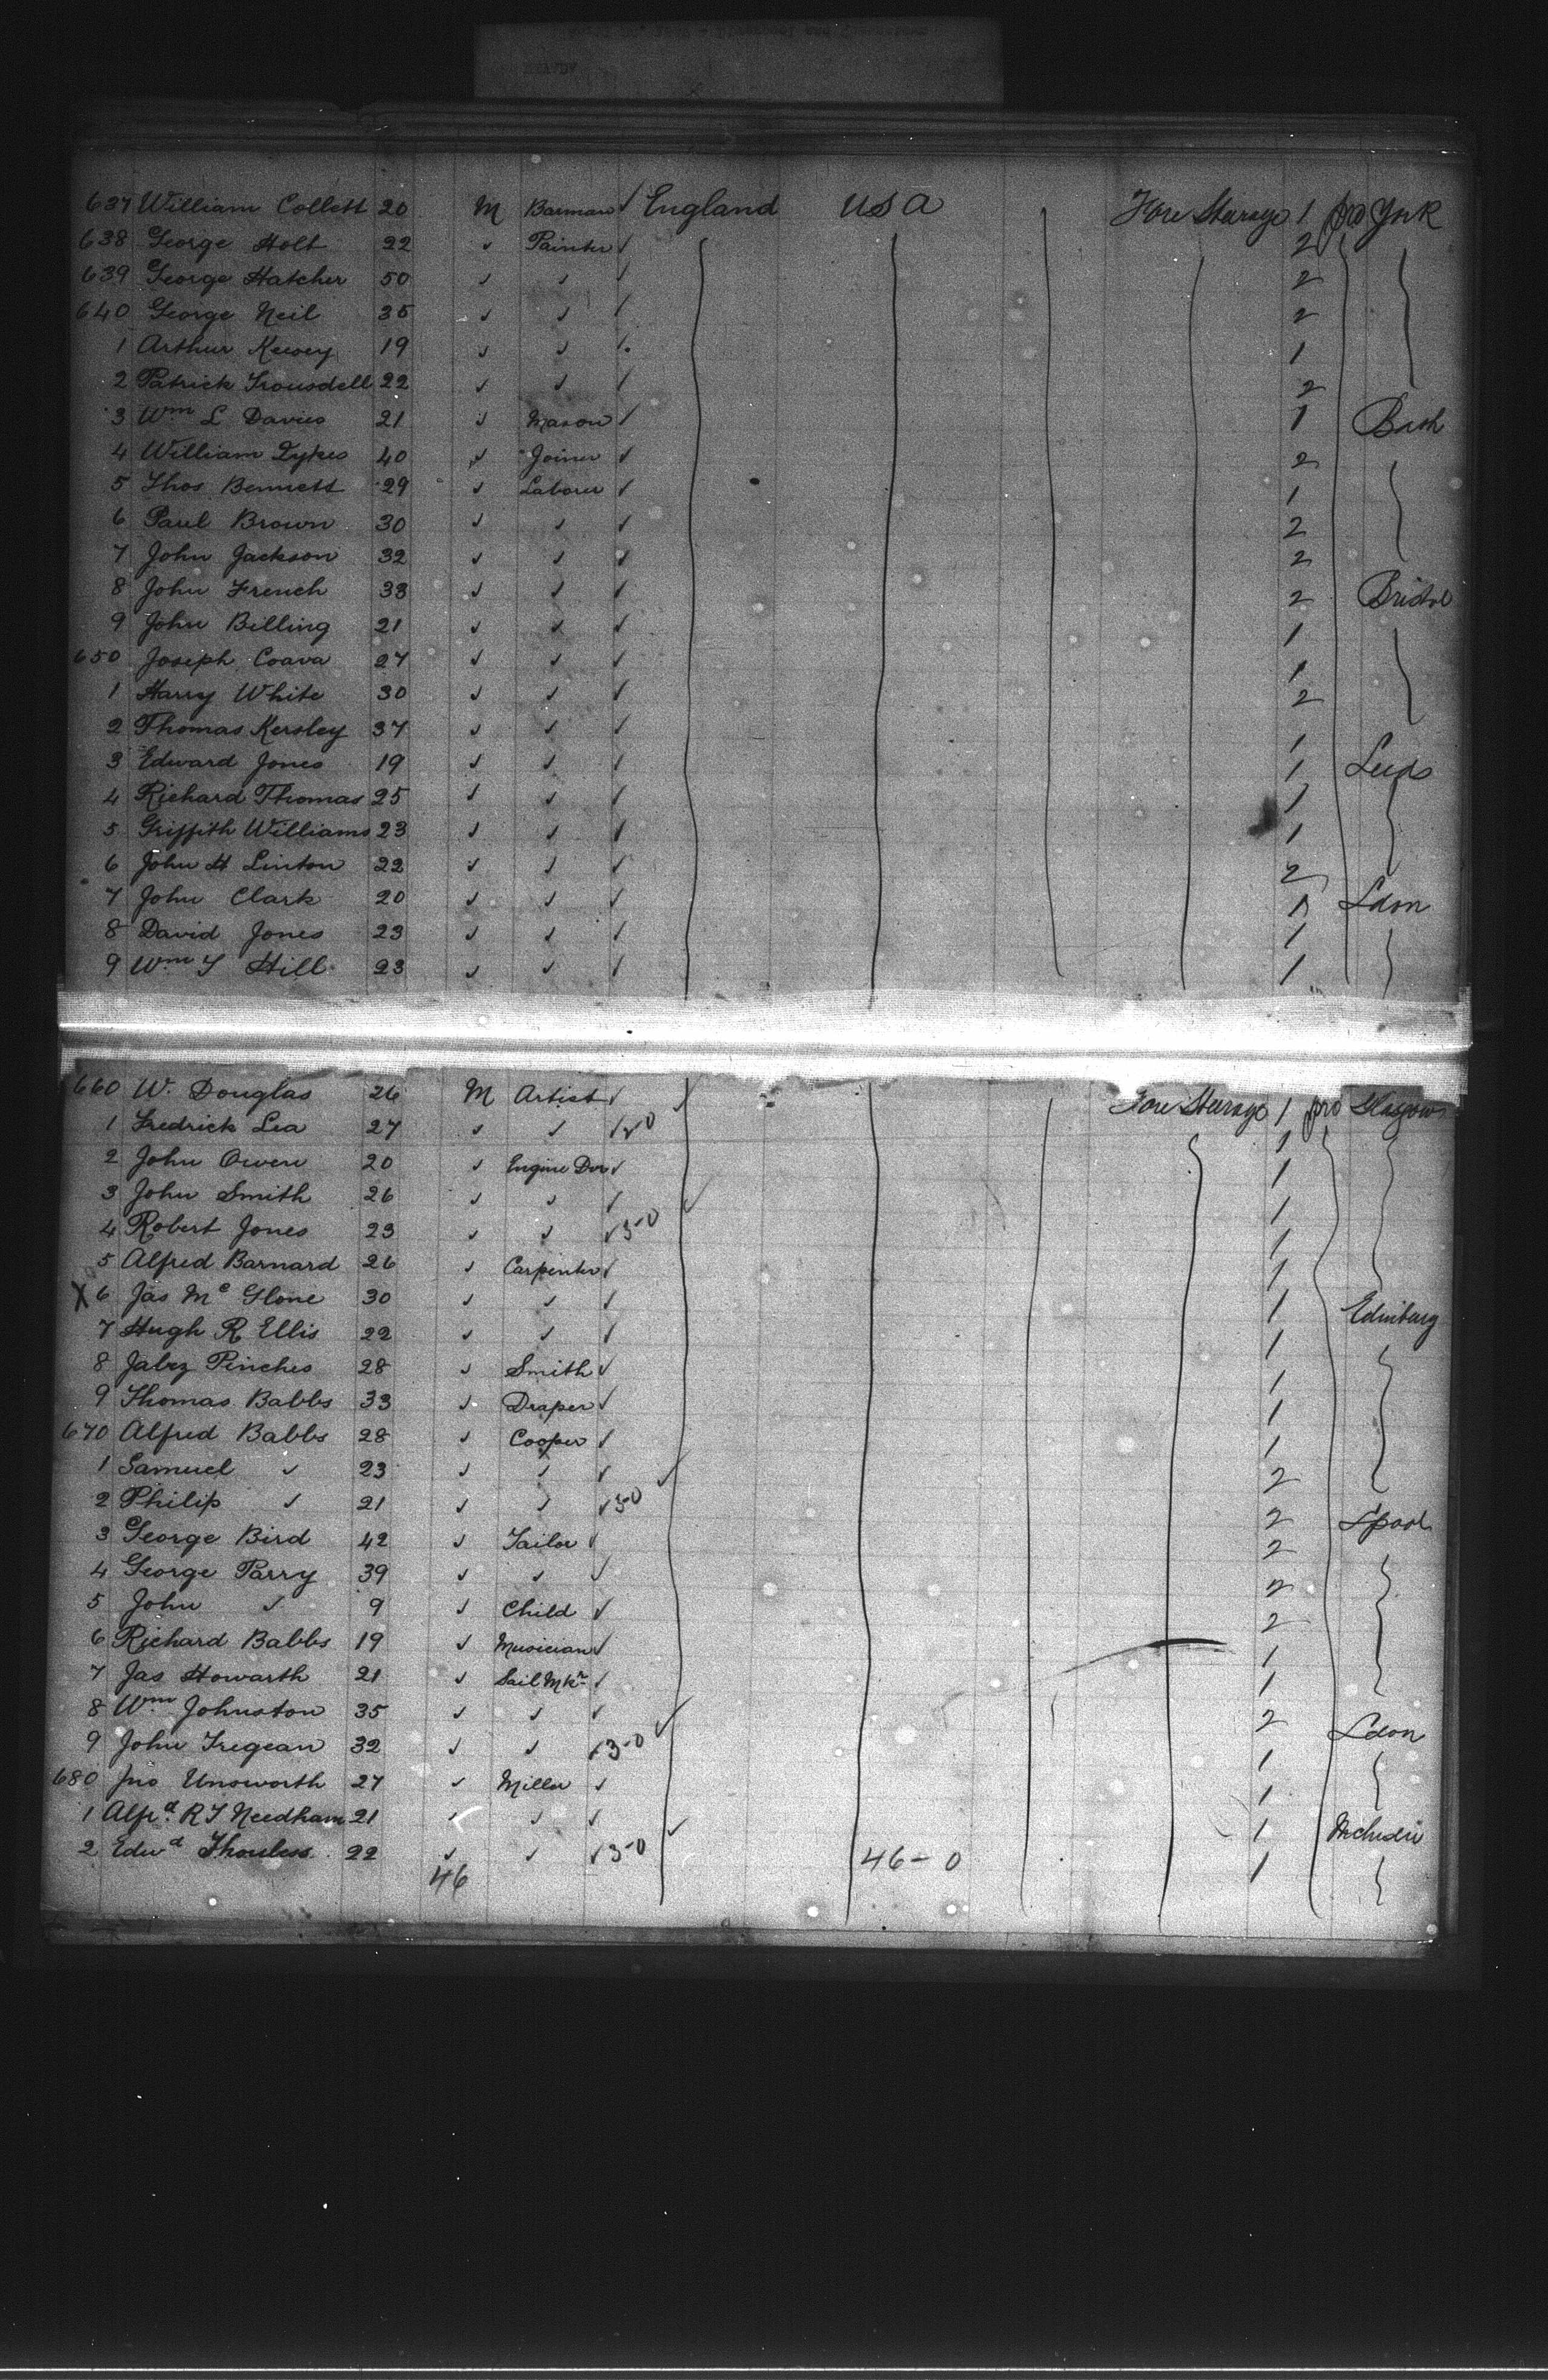 637 William Collett 20 M Barman ✓ England USA Fore Steerage 1 pro York
638 George Holt 22 ✓ Painter ✓ 2
639 George Hatcher 50 ✓ ✓ ✓ 2
640 George Neil 35 ✓ ✓ ✓ 2
1 Arthur Kewey 19 ✓ ✓ ✓ 1
2 Patrick Trousdell 22 ✓ ✓ ✓ 2
3 Wm L Davies 21 ✓ Mason ✓ 1 Bath
4 William Dykes 40 ✓ Joiner ✓ 2
5 Thos Bennett 29 ✓ Laborer ✓ 1
6 Paul Brown 30 ✓ ✓ ✓ 2
7 John Jackson 32 ✓ ✓ ✓ 2
8 John French 33 ✓ ✓ ✓ 2 Bristol
9 John Billing 21 ✓ ✓ ✓ 1
650 Joseph Coava 27 ✓ ✓ ✓ 1
1 Harry White 30 ✓ ✓ ✓ 2
2 Thomas Kersley 37 ✓ ✓ ✓ 1
3 Edward Jones 19 ✓ ✓ ✓ 1 Leeds
4 Richard Thomas 25 ✓ ✓ ✓ 1
5 Griffith Williams 23 ✓ ✓ ✓ 1
6 John H Linton 22 ✓ ✓ ✓ 2
7 John Clark 20 ✓ ✓ ✓ 1 Ldon
8 David Jones 23 ✓ ✓ ✓ 1
9 Wm T Hill 23 ✓ ✓ ✓ 1
660 W. Douglas 26 M Artist ✓ Fore Steerage 1 pro Glasgow
1 Fredrick Lea 27 ✓ ✓ ✓ 1
2 John Owen 20 ✓ Engine Dvr ✓ 1
3 John Smith 26 ✓ ✓ ✓ ✓ 1
4 Robert Jones 23 ✓ ✓ ✓ 3-0 1
5 Alfred Barnard 26 ✓ Carpenter ✓ 1
X 6 Jas Mc Glone 30 ✓ ✓ ✓ 1 Edinburg
7 Hugh R Ellis 22 ✓ ✓ ✓ 1
8 Jabez Pinches 28 ✓ Smith ✓ 1
9 Thomas Babbs 33 ✓ Draper ✓ 1
670 Alfred Babbs 28 ✓ Cooper ✓ 1
1 Samuel ✓ 23 ✓ ✓ ✓ ✓ 2
2 Philip ✓ 21 ✓ ✓ ✓ 3-0 2 L'pool
3 George Bird 42 ✓ Tailor ✓ 2
4 George Parry 39 ✓ ✓ ✓ 2
5 John ✓ 9 ✓ Child ✓ 2
6 Richard Babbs 19 ✓ Musician ✓ 1
7 Jas Howarth 21 ✓ Sail Mkr ✓ 1
8 Wm Johnston 35 ✓ ✓ ✓ ✓ 2 Ldon
9 John Tregean 32 ✓ ✓ ✓ 3-0 1
680 Jno Unsworth 27 ✓ Miller ✓ 1
1 Alfd. R T Needham 21 ✓ ✓ ✓ ✓ 1
2 Edwd Thouless 22 ✓ ✓ ✓ 3-0 1
46 46-0